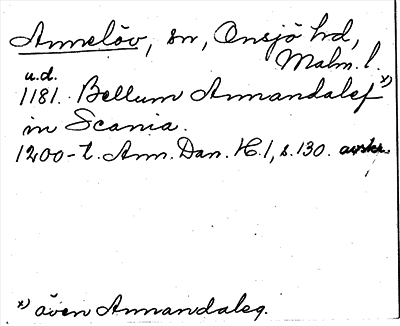 Annelöv, sn, Onsjö hd,
Malm. l.
u.d.
1181. Bellum Annandalef x)
in Scania.
1200-t. Ann. Dan. H. 1, s. 130. avskr.
x) även Annandaleg.